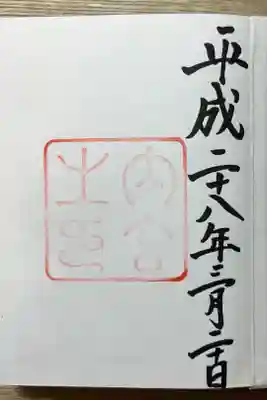 平成二十八年三月二十日
内宮
之印